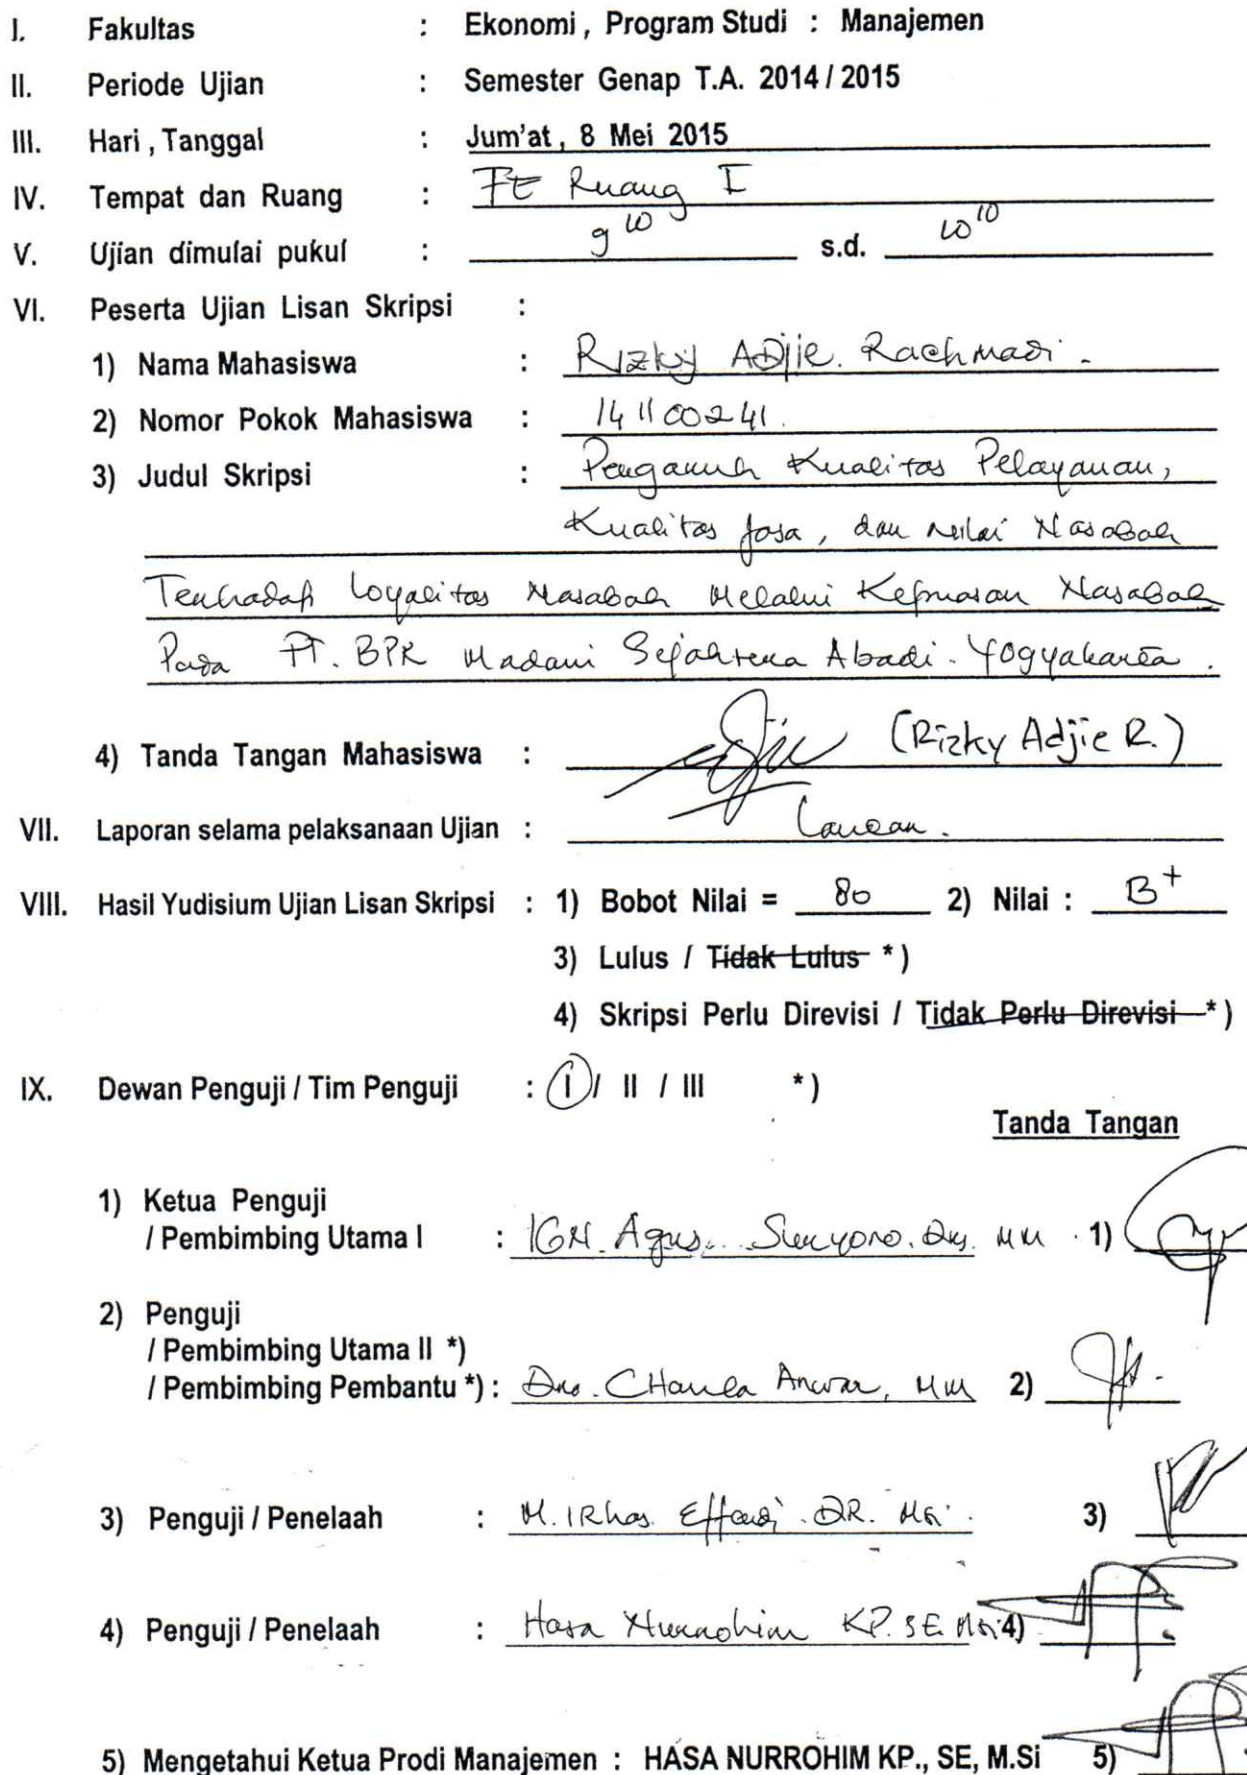 I. Fakultas : Ekonomi, Program Studi : Manajemen
II. Periode Ujian : Semester Genap T.A. 2014 / 2015
III. Hari, Tanggal : Jum'at, 8 Mei 2015
IV. Tempat dan Ruang : FE Ruang I
V. Ujian dimulai pukul : 9 10 s.d. 10 10
VI. Peserta Ujian Lisan Skripsi :
1) Nama Mahasiswa : Rizky Adjie. Rachmadi.
2) Nomor Pokok Mahasiswa : 141100241.
3) Judul Skripsi : Pengaruh Kualitas Pelayanan,
Kualitas Jasa, dan Nilai Nasabah
Terhadap Loyalitas Nasabah Melalui Kepuasan Nasabah
Pada PT. BPR Madani Sejahtera Abadi. Yogyakarta.
4) Tanda Tangan Mahasiswa : (Rizky Adjie R.)
VII. Laporan selama pelaksanaan Ujian : Lancar.
VIII. Hasil Yudisium Ujian Lisan Skripsi : 1) Bobot Nilai = 80 2) Nilai : B+
3) Lulus / Tidak Lulus *)
4) Skripsi Perlu Direvisi / Tidak Perlu Direvisi *)
IX. Dewan Penguji / Tim Penguji : I / II / III *)
Tanda Tangan
1) Ketua Penguji
/ Pembimbing Utama I : IGN. Agus. Suryono. Drs. MM. 1)
2) Penguji
/ Pembimbing Utama II *)
/ Pembimbing Pembantu *) : Drs. Anwar, MM 2)
3) Penguji / Penelaah : M. Irhas. Effendi. DR. Msi. 3)
4) Penguji / Penelaah : Hasa Nurrohim KP. SE. Msi 4)
5) Mengetahui Ketua Prodi Manajemen : HASA NURROHIM KP., SE, M.Si 5)